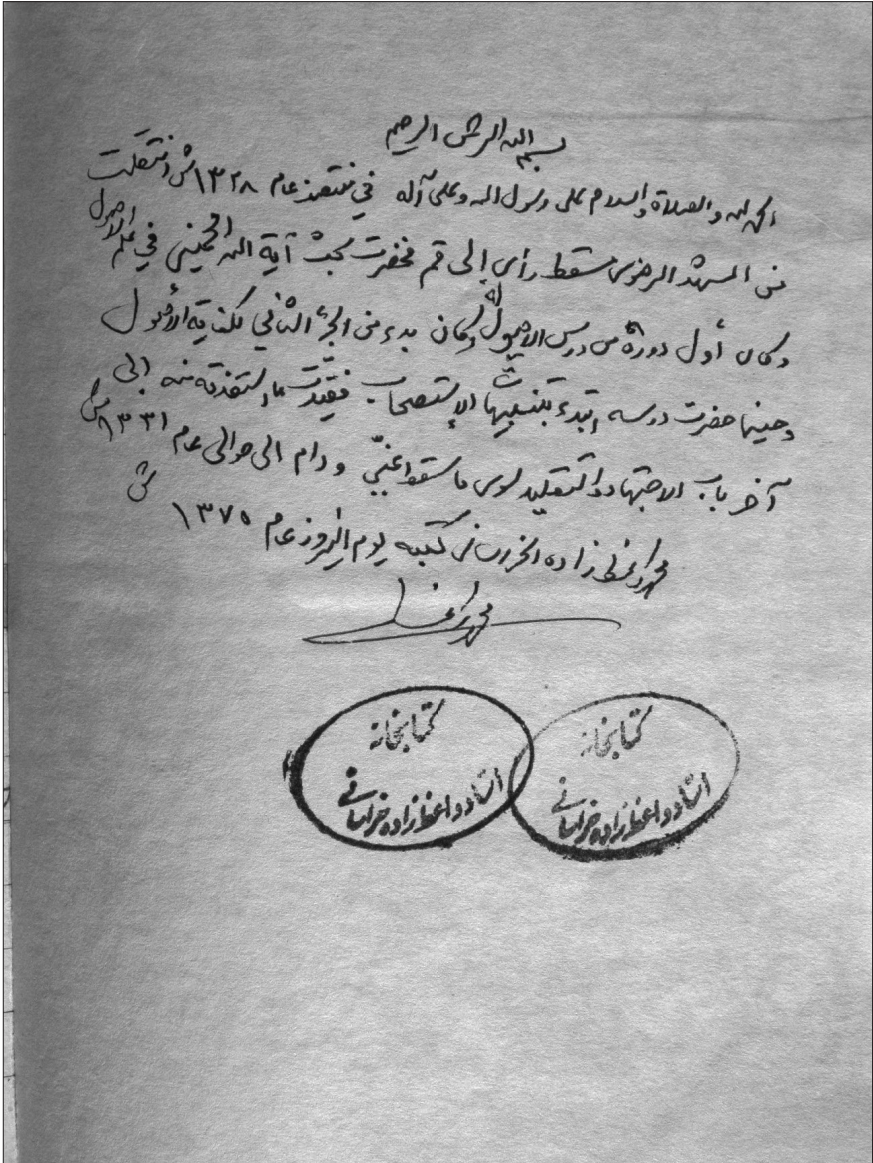 بسم الله الرحمن الرحيم
الحمد لله والصلاة والسلام على رسول الله وعلى آله في عام ١٣٢٨ ش انتقلت
من المشهد الرضوي مسقط رأسي إلى قم فحضرت بحث آية الله الخميني في علم الاصول
وكان أول دورة من درس الاصول له وكان بدء من الجزء الثاني لكفاية الأصول
وحينما حضرت درسه الاستصحاب فقيدت ما استفدته منه الى
آخر باب الاجتهاد والتقليد سوى ما سقط عني ودام الى حوالى عام ١٣٣١ ش
محمد واعظ زاده الخراساني كتبته يوم النيروز عام ١٣٧٥ ش
كتابخانه
استاد واعظ زاده خراسانى
كتابخانه
استاد واعظ زاده خراسانى